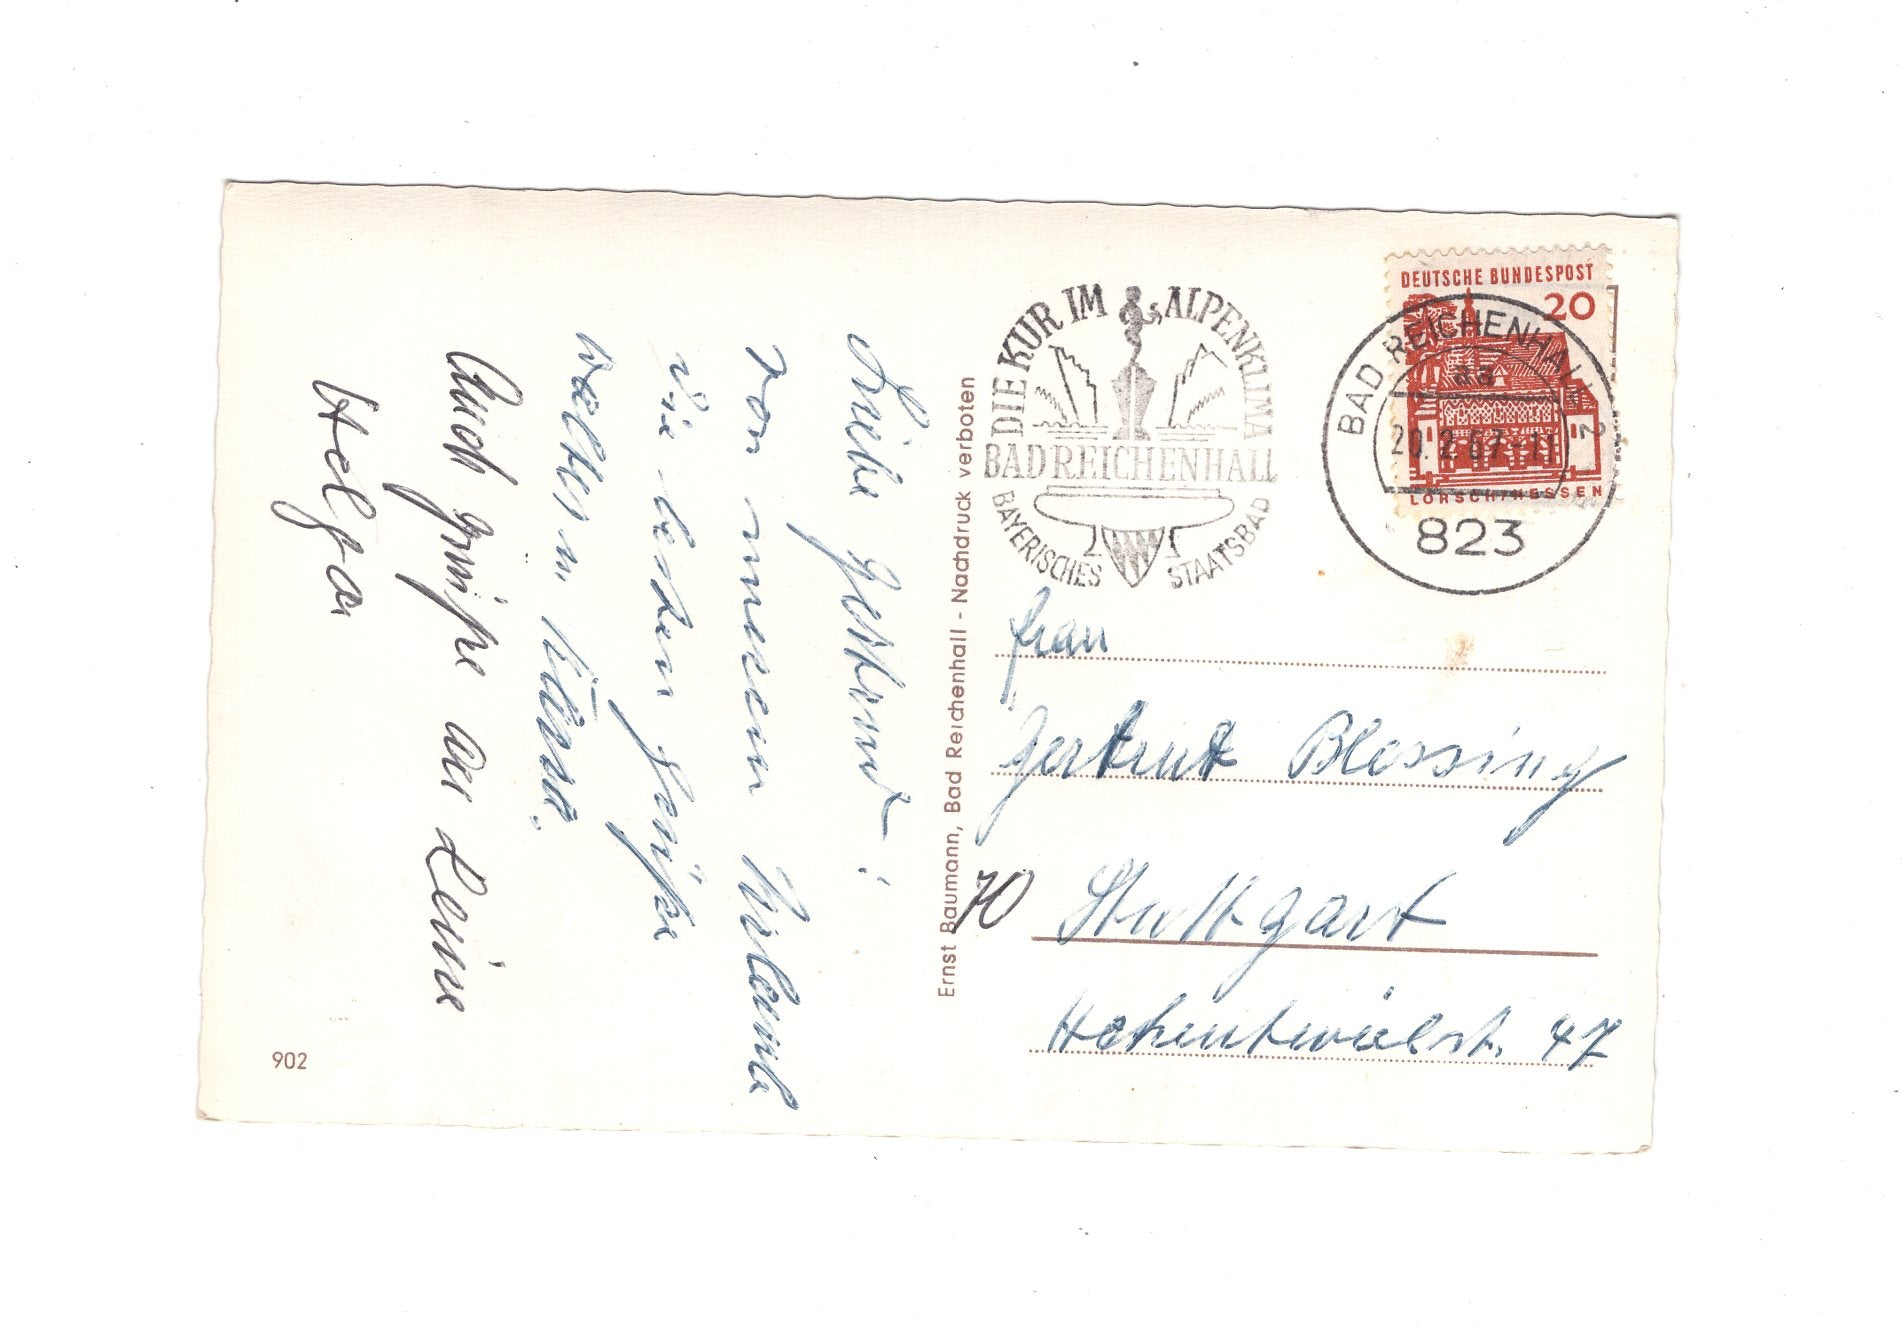 Liebe Gertrud!
von unserem Urlaub
die besten Grüße
Walter u.
Auch Grüße der Deine
Helga
Ernst Baumann, Bad Reichenhall - Nachdruck verboten
902
DIE KUR IM ALPENKLIMA
BAD REICHENHALL
BAYERISCHES STAATSBAD
DEUTSCHE BUNDESPOST
20
LORSCH/HESSEN
BAD REICHENHALL 2
aa
20.2.67-11
823
Frau
Gertrud Blessing
70 Stuttgart
Hohentwielstr. 47